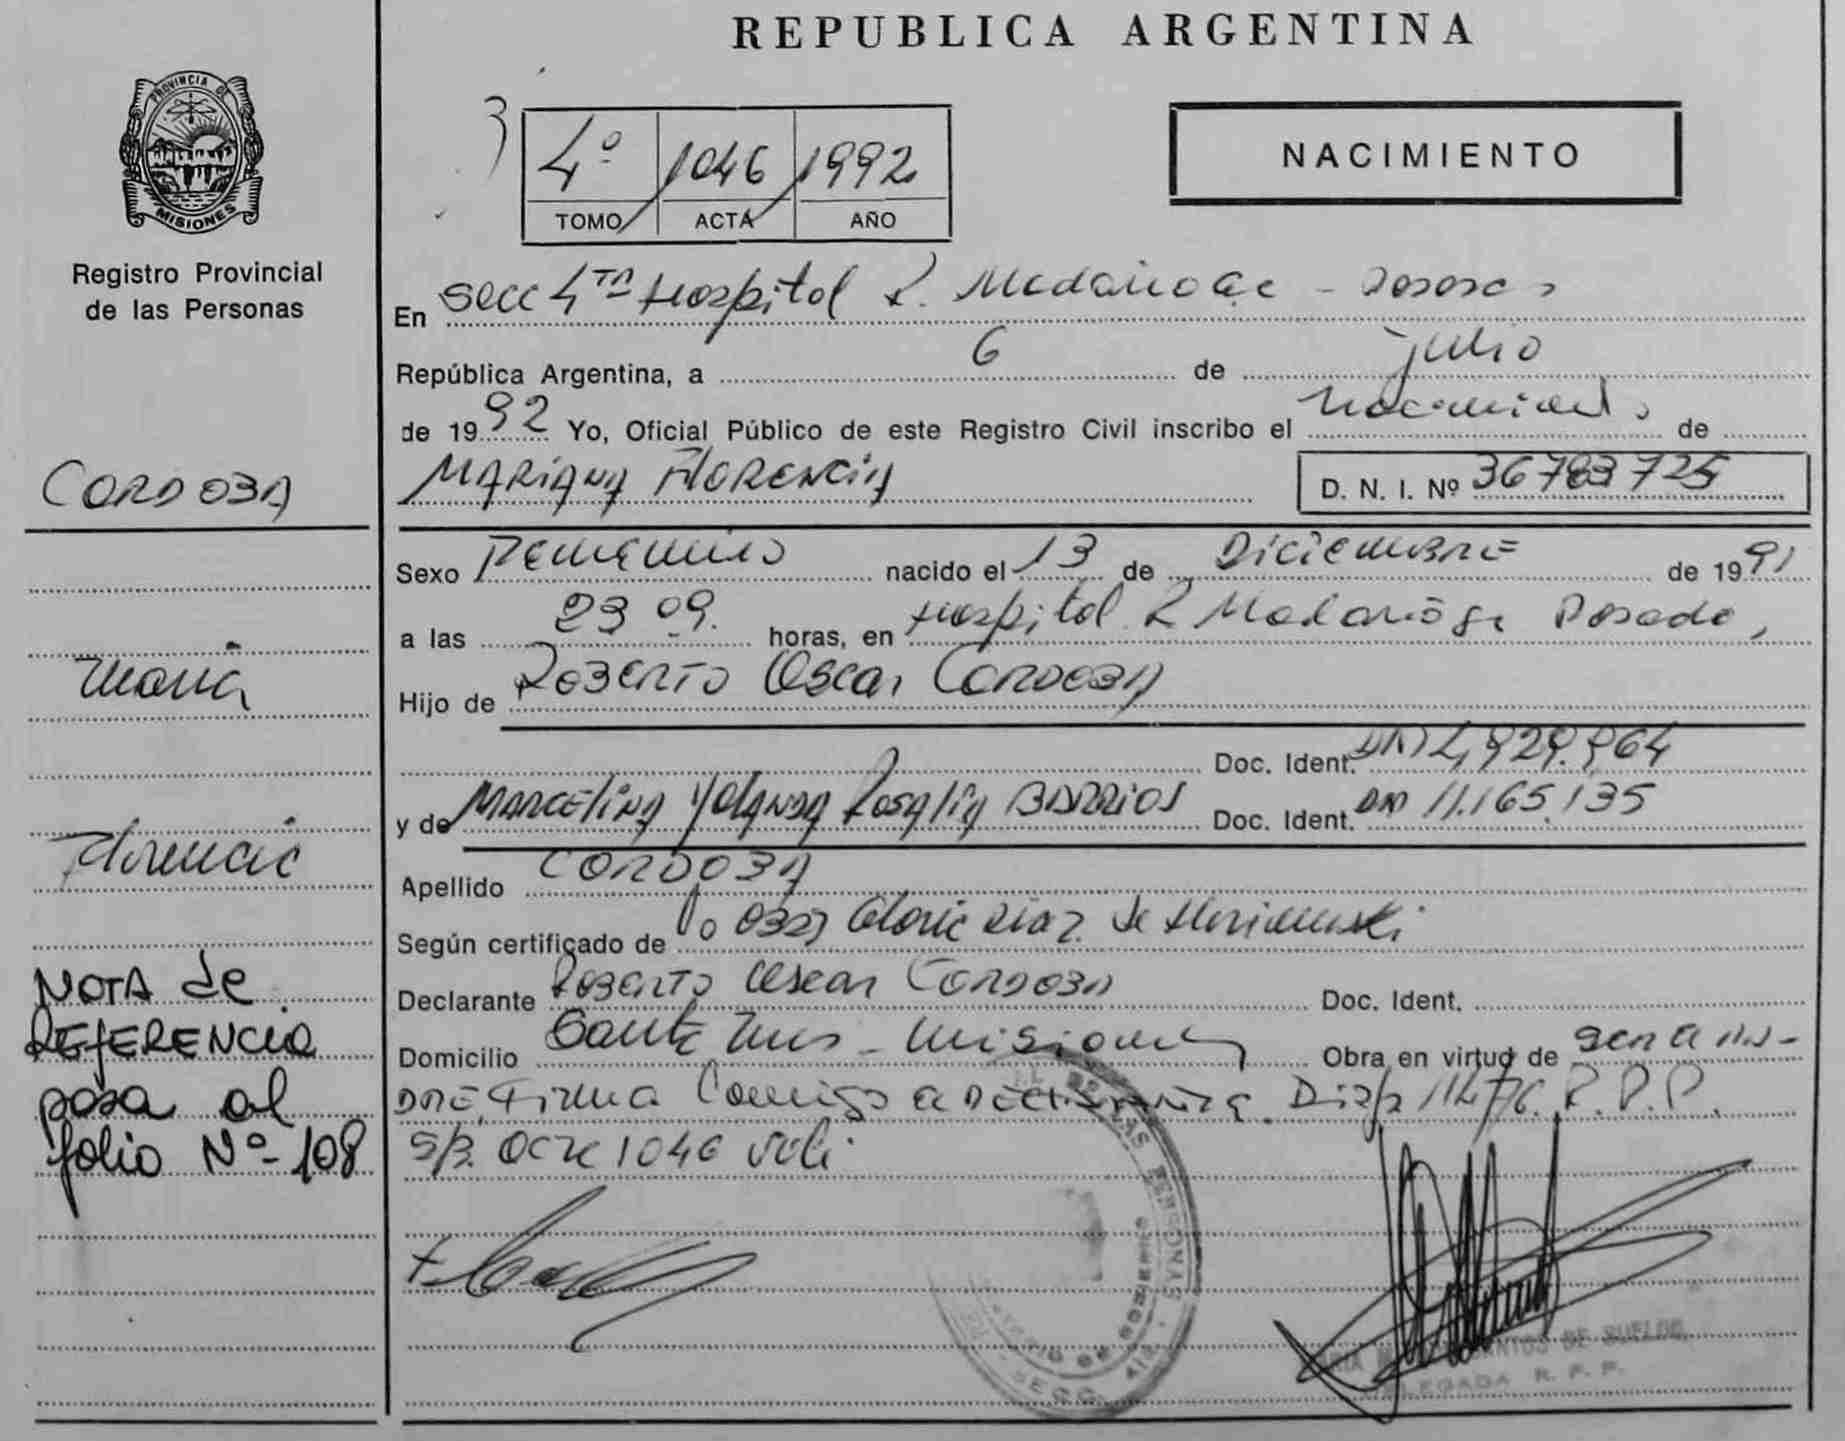 REPUBLICA ARGENTINA
PROVINCIA DE
MISIONES
Registro Provincial
de las Personas
4º 1046 1992
TOMO ACTA AÑO
NACIMIENTO
En Secc 4ta Hospital R. Madariaga - Posadas
República Argentina, a 6 de julio
de 1992 Yo, Oficial Público de este Registro Civil inscribo el nacimiento de
MARIANA FLORENCIA
D. N. I. Nº 36783725
CORDOBA
Sexo Femenino nacido el 13 de Diciembre de 1991
a las 23 09. horas, en Hospital R Madariaga Posadas
Hijo de Roberto Oscar CORDOBA
Doc. Ident.
y de Marcelina Yolanda Rosalia BARRIOS Doc. Ident. DNI 11.165.135
Apellido CORDOBA
Según certificado de Gloria Diaz de
Declarante Roberto Oscar CORDOBA Doc. Ident.
Domicilio Misiones Obra en virtud de
Firma Conmigo R.P.P.
1046
Florencia
NOTA de
REFERENCIA
pasa al
folio Nº 108
DE SUELDO
DELEGADA R. P. P.